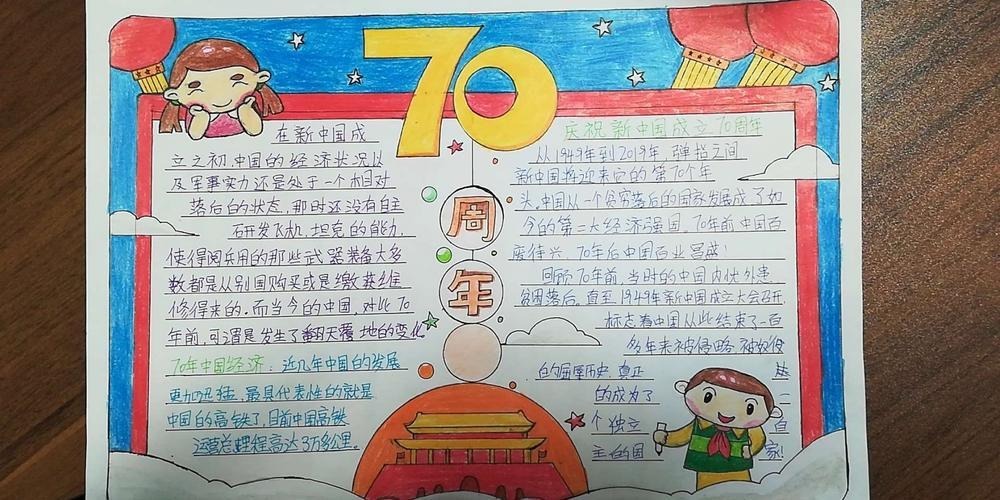 70
周
年
在新中国成
立之初,中国的经济状况以
及军事实力还是处于一个相对
落后的状态,那时还没有自主
研发飞机,坦克的能力.
使得阅兵用的那些武器装备大多
数都是从别国购买或是缴获维
修得来的.而当今的中国,对比70
年前,可谓是发生了翻天覆地的变化
70年中国经济:近几年中国的发展
更加迅猛,最具代表性的就是
中国的高铁了,目前中国高铁
运营总里程高达3万多公里。
庆祝新中国成立70周年
从1949年到2019年,弹指之间
新中国将迎来它的第70个年
头,中国从一个贫穷落后的国家发展成了如
今的第二大经济强国,70年前中国百
废待兴,70年后中国百业昌盛!
回顾70年前,当时的中国内忧外患,
贫困落后,直至1949年新中国成立大会召开,
标志着中国从此结束了一百
多年来被侵略,被奴役
的屈辱历史,真正
的成为了 一
个独立 自
主的国 家!